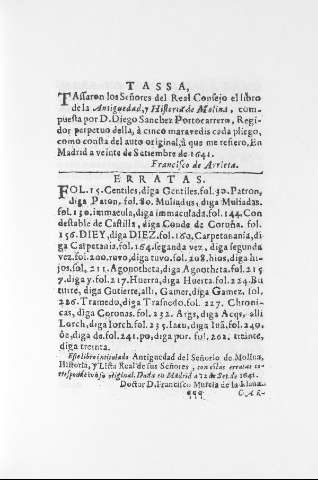 TASSA,
TAssaron los Señores del Real Consejo el libro
de la Antiguedad, y Historia de Molina, com-
puesta por D. Diego Sanchez Portocarrero, Regi-
dor perpetuo della, à cinco maravedis cada pliego,
como consta del auto original, à que me refiero. En
Madrid a veinte de Setiembre de 1641.
Francisco de Arrieta.
ERRATAS.
FOL. 15. Centiles, diga Gentiles. fol. 30. Patron,
diga Paton. fol. 80. Muliadus, diga Muliadas.
fol. 130. immacula, diga immaculada. fol. 144. Con
destable de Castilla, diga Conde de Coruña. fol.
156. DIEY, diga DIEZ. fol. 160. Carpetanania, di-
ga Carpetania. fol. 164. segunda vez, diga segunda
vez. fol. 200. rovo, diga tuvo. fol. 208. hios, diga hi-
jos. fol. 211. Agonotheta, diga Agnotheta. fol. 215
7. diga y. fol. 217. Huerra, diga Huerta. fol. 224. Bu
tuirre, diga Gutierre, alli, Gamer, diga Gamez. fol.
226. Tramedo, diga Trasnedo. fol. 227. Chroni-
cas, diga Coronas. fol. 232. Args, diga Acqs, alli
Lorch, diga lorch. fol. 235. latu, diga luà. fol. 240.
òe, diga de. fol. 241. po, diga pur. ful. 202. treinte,
diga treinta.
Este libro intitulado Antiguedad del Señorio de Molina,
Historia, y Lista Real de sus Señores, con estas erratas co-
rresponde con su original. Dada en Madrid a 12 de Set. de 1641.
Doctor D. Francisco Murcia de la Llana.
¶¶¶ CAR-